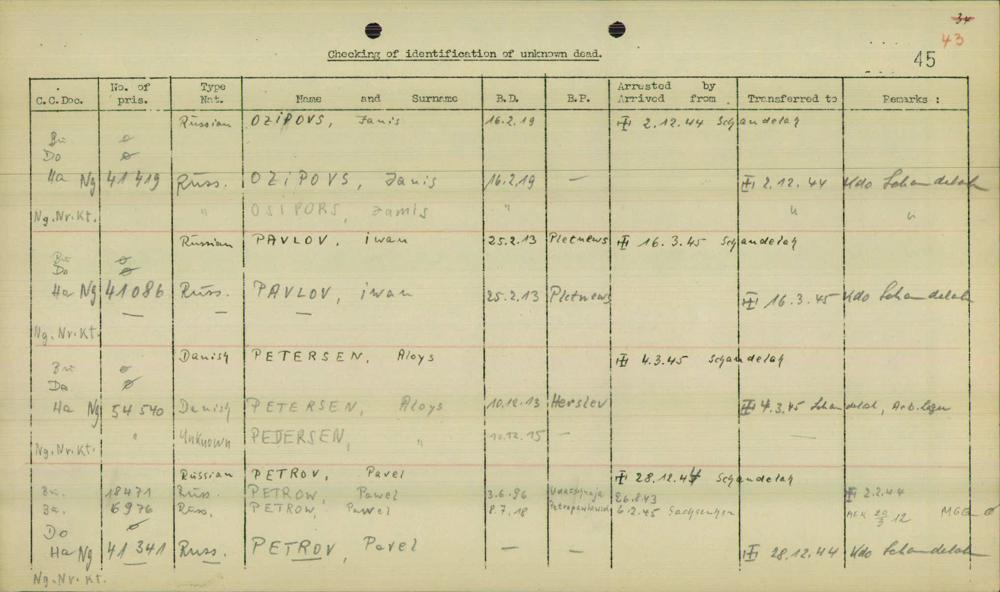 34
43
45
Checking of identification of unknown dead.
C.C.Doc. No. of pris. Type Nat. Name and Surname B.D. B.P. Arrested by Arrived from Transferred to Remarks :
Russian OZiPOVS, Janis 16.2.19 2.12.44 Schandelah
Bu ø
Do ø
Ha Ng 41 419 Russ. OZiPOVS, Janis 16.2.19 — 2.12.44 Kdo Schandelah
Ng.Nr.Kt. " OSiPORS, Jamis " " "
Russian PAVLOV, iwan 25.2.13 Pletnews 16.3.45 Schandelah
Bu ø
Do ø
Ha Ng 41 086 Russ. PAVLOV, iwan 25.2.13 Pletnews 16.3.45 Kdo Schandelah
Ng.Nr.Kt. — — —
Danish PETERSEN, Aloys 4.3.45 Schandelah
Bu ø
Do ø
Ha Ng 54 540 Danish PETERSEN, Aloys 10.12.13 Herslev 4.3.45 Schandelah,
Ng.Nr.Kt. " Unknown PEDERSEN, " 10.12.15 — —
Russian PETROV, Pavel 28.12.44 Schandelah
Bu. 18471 Russ. PETROW, Pawel 3.6.96 26.8.43 2.2.44
Sa. 6976 Russ. PETROW, Pawel 8.7.18 6.2.45 Sachsenhsn
Do ø
Ha Ng 41 341 Russ. PETROV, Pavel — — 28.12.44 Kdo Schandelah
Ng.Nr.Kt.